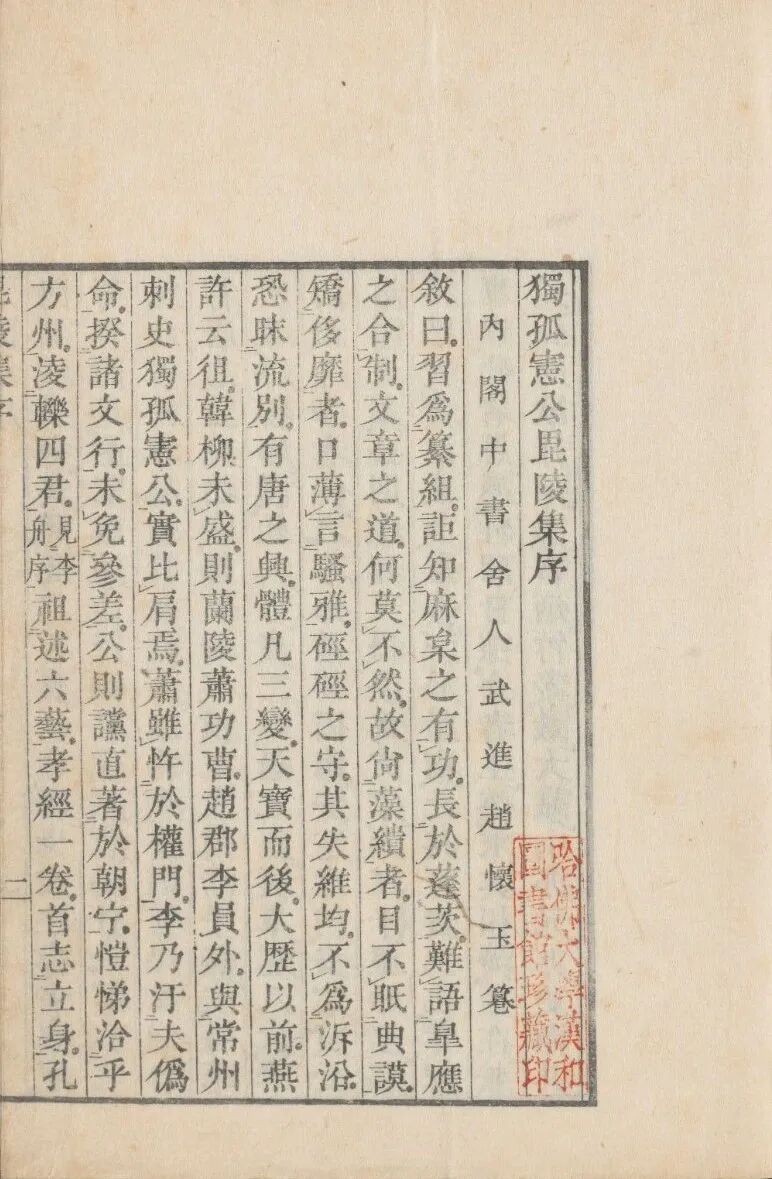 獨孤憲公毘陵集序
內閣中書舍人武進趙懷玉篹
敘曰習爲纂組詎知麻枲之有功長於蓬茨難語皐應
之合制文章之道何莫不然故尙藻繢者目不眡典謨
矯侈靡者口薄言騷雅硜硜之守其失維均不爲泝沿
恐昧流別有唐之興體凡三變天寶而後大歷以前燕
許云徂韓柳未盛則蘭陵蕭功曹趙郡李員外與常州
刺史獨孤憲公實比肩焉蕭雖忤於權門李乃汙夫僞
命揆諸文行未免參差公則讜直著於朝宁愷悌洽乎
方州凌轢四君見李舟序祖述六藝孝經一卷首志立身孔
毘陵集序
一
哈佛大學漢和
圖書館珍藏印